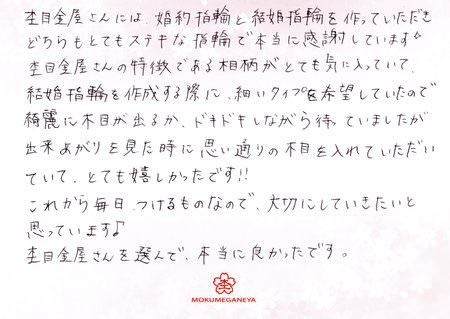 杢目金屋さんには、婚約指輪と結婚指輪を作っていただき
どちらもとてもステキな指輪で本当に感謝しています。
杢目金屋さんの特徴である相柄がとても気に入っていて、
結婚指輪を作成する際に、細いタイプを希望していたので
綺麗に木目が出るか、ドキドキしながら待っていましたが
出来あがりを見た時に思い通りの木目を入れていただい
ていて、とても嬉しかったです!!
これから毎日、つけるものなので、大切にしていきたいと
思っています♪
杢目金屋さんを選んで、本当に良かったです。
MOKUMEGANEYA